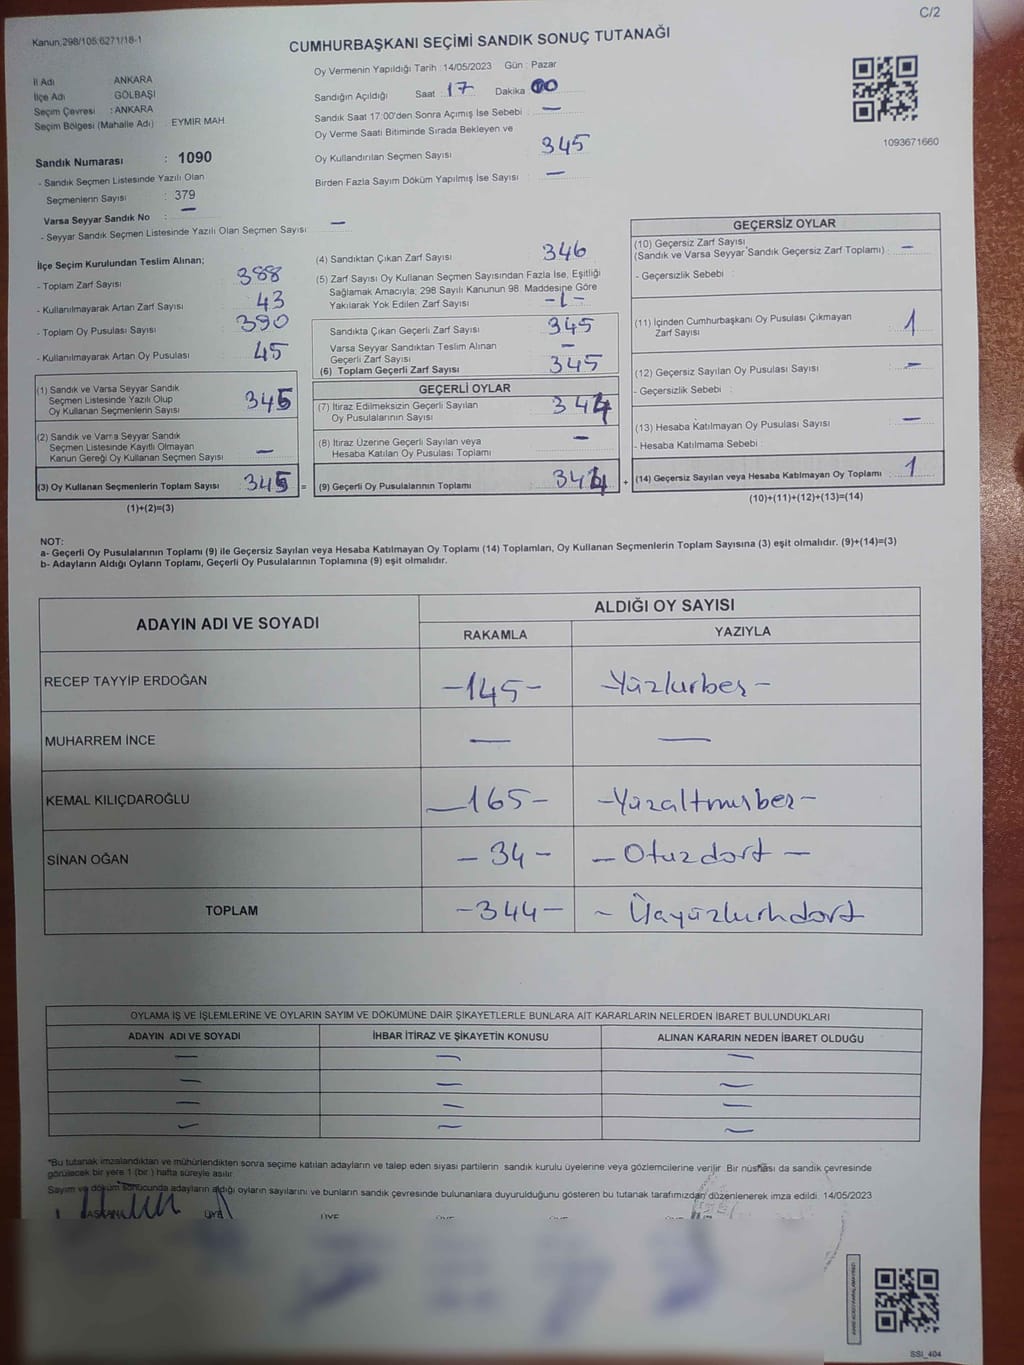 C/2
Kanun:298/105;6271/18-1
CUMHURBAŞKANI SEÇİMİ SANDIK SONUÇ TUTANAĞI
İl Adı ANKARA
İlçe Adı GÖLBAŞI
Seçim Çevresi : ANKARA
Seçim Bölgesi (Mahalle Adı) : EYMİR MAH
Sandık Numarası : 1090
- Sandık Seçmen Listesinde Yazılı Olan
Seçmenlerin Sayısı : 379
Varsa Seyyar Sandık No : —
- Seyyar Sandık Seçmen Listesinde Yazılı Olan Seçmen Sayısı : —
Oy Vermenin Yapıldığı Tarih :14/05/2023 Gün : Pazar
Sandığın Açıldığı Saat : 17 Dakika 00
Sandık Saat 17:00'den Sonra Açımış İse Sebebi : —
Oy Verme Saati Bitiminde Sırada Bekleyen ve
Oy Kullandırılan Seçmen Sayısı : 345
Birden Fazla Sayım Döküm Yapılmış İse Sayısı : —
1093671660
İlçe Seçim Kurulundan Teslim Alınan;
- Toplam Zarf Sayısı : 388
- Kullanılmayarak Artan Zarf Sayısı : 43
- Toplam Oy Pusulası Sayısı : 390
- Kullanılmayarak Artan Oy Pusulası : 45
(1) Sandık ve Varsa Seyyar Sandık
Seçmen Listesinde Yazılı Olup
Oy Kullanan Seçmenlerin Sayısı : 345
(2) Sandık ve Varsa Seyyar Sandık
Seçmen Listesinde Kayıtlı Olmayan
Kanun Gereği Oy Kullanan Seçmen Sayısı : —
(3) Oy Kullanan Seçmenlerin Toplam Sayısı : 345 =
(1)+(2)=(3)
(4) Sandıktan Çıkan Zarf Sayısı : 346
(5) Zarf Sayısı Oy Kullanan Seçmen Sayısından Fazla İse, Eşitliği
Sağlamak Amacıyla; 298 Sayılı Kanunun 98. Maddesine Göre
Yakılarak Yok Edilen Zarf Sayısı : -1-
Sandıkta Çıkan Geçerli Zarf Sayısı : 345
Varsa Seyyar Sandıktan Teslim Alınan
Geçerli Zarf Sayısı : —
(6) Toplam Geçerli Zarf Sayısı : 345
GEÇERLİ OYLAR
(7) İtiraz Edilmeksizin Geçerli Sayılan
Oy Pusulalarının Sayısı : 344
(8) İtiraz Üzerine Geçerli Sayılan veya
Hesaba Katılan Oy Pusulası Toplamı : —
(9) Geçerli Oy Pusulalarının Toplamı : 344 +
GEÇERSİZ OYLAR
(10) Geçersiz Zarf Sayısı
(Sandık ve Varsa Seyyar Sandık Geçersiz Zarf Toplamı) : —
- Geçersizlik Sebebi :
(11) İçinden Cumhurbaşkanı Oy Pusulası Çıkmayan
Zarf Sayısı : 1
(12) Geçersiz Sayılan Oy Pusulası Sayısı : —
- Geçersizlik Sebebi :
(13) Hesaba Katılmayan Oy Pusulası Sayısı : —
- Hesaba Katılmama Sebebi :
(14) Geçersiz Sayılan veya Hesaba Katılmayan Oy Toplamı : 1
(10)+(11)+(12)+(13)=(14)
NOT:
a- Geçerli Oy Pusulalarının Toplamı (9) ile Geçersiz Sayılan veya Hesaba Katılmayan Oy Toplamı (14) Toplamları, Oy Kullanan Seçmenlerin Toplam Sayısına (3) eşit olmalıdır. (9)+(14)=(3)
b- Adayların Aldığı Oyların Toplamı, Geçerli Oy Pusulalarının Toplamına (9) eşit olmalıdır.
ADAYIN ADI VE SOYADI ALDIĞI OY SAYISI
RAKAMLA YAZIYLA
RECEP TAYYİP ERDOĞAN -145- -Yüzkırkbeş-
MUHARREM İNCE — —
KEMAL KILIÇDAROĞLU -165- -Yüzaltmışbeş-
SİNAN OĞAN -34- -Otuzdört-
TOPLAM -344- -Üçyüzkırkdört
OYLAMA İŞ VE İŞLEMLERİNE VE OYLARIN SAYIM VE DÖKÜMÜNE DAİR ŞİKAYETLERLE BUNLARA AİT KARARLARIN NELERDEN İBARET BULUNDUKLARI
ADAYIN ADI VE SOYADI İHBAR İTİRAZ VE ŞİKAYETİN KONUSU ALINAN KARARIN NEDEN İBARET OLDUĞU
— — —
— — —
— — —
— — —
*Bu tutanak imzalandıktan ve mühürlendikten sonra seçime katılan adayların ve talep eden siyasi partilerin sandık kurulu üyelerine veya gözlemcilerine verilir. Bir nüshası da sandık çevresinde
görülecek bir yere 1 (bir ) hafta süreyle asılır.
Sayım ve döküm sonucunda adayların aldığı oyların sayılarını ve bunların sandık çevresinde bulunanlara duyurulduğunu gösteren bu tutanak tarafımızdan düzenlenerek imza edildi. 14/05/2023
BAŞKAN ÜYE ÜYE ÜYE ÜYE ÜYE
SSI_404